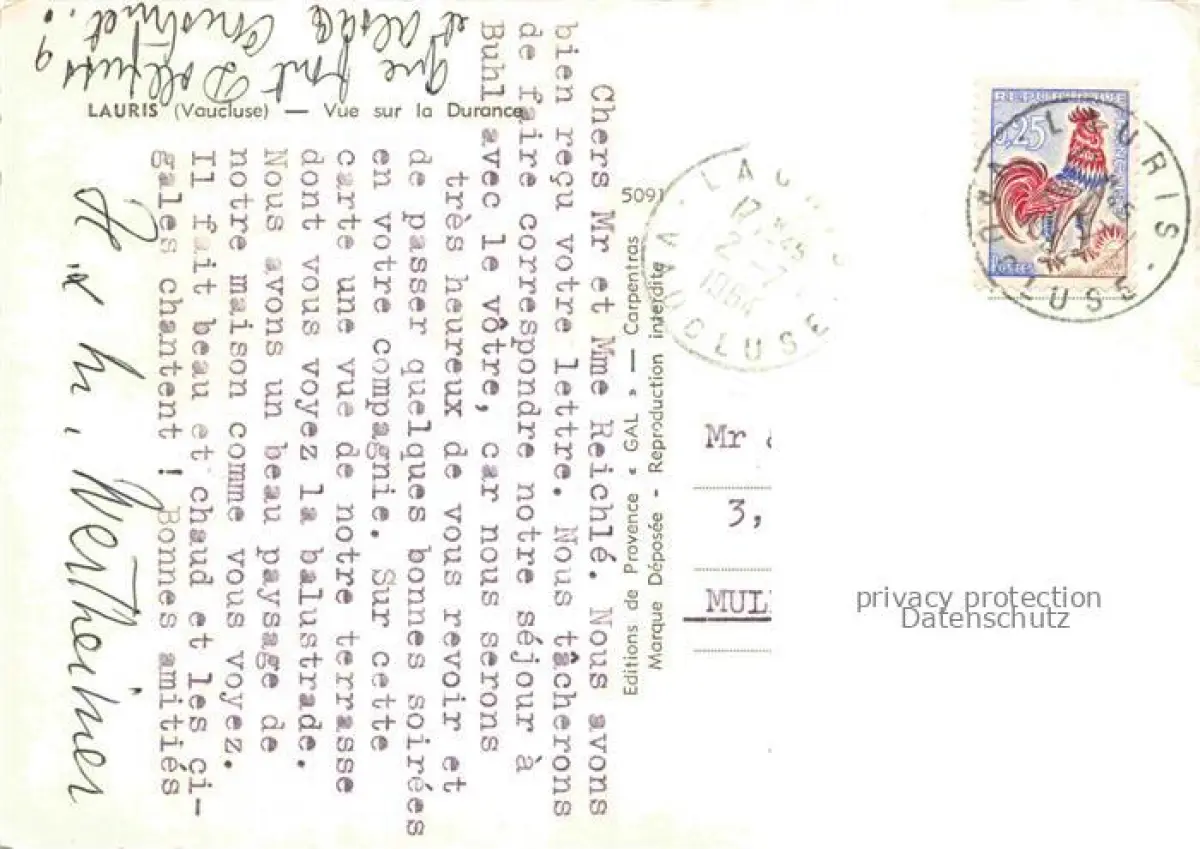 LAURIS (Vaucluse) — Vue sur la Durance
Chers Mr et Mme Reichlé. Nous avons
bien reçu votre lettre. Nous tâcherons
de faire correspondre notre séjour à
Buhl avec le vôtre, car nous serons
très heureux de vous revoir et
de passer quelques bonnes soirées
en votre compagnie. Sur cette
carte une vue de notre terrasse
dont vous voyez la balustrade.
Nous avons un beau paysage de
notre maison comme vous voyez.
Il fait beau et chaud et les ci-
gales chantent ! Bonnes amitiés
Wertheimer
que font Dollfuss
et alsac
5091
Editions de Provence « GAL » — Carpentras
Marque Déposée - Reproduction interdite
LAURIS
17 H 45
2 - 7
1964
VAUCLUSE
REPUBLIQUE
0,25
Postes
LAURIS
VAUCLUSE
Mr
3,
MUL
privacy protection
Datenschutz